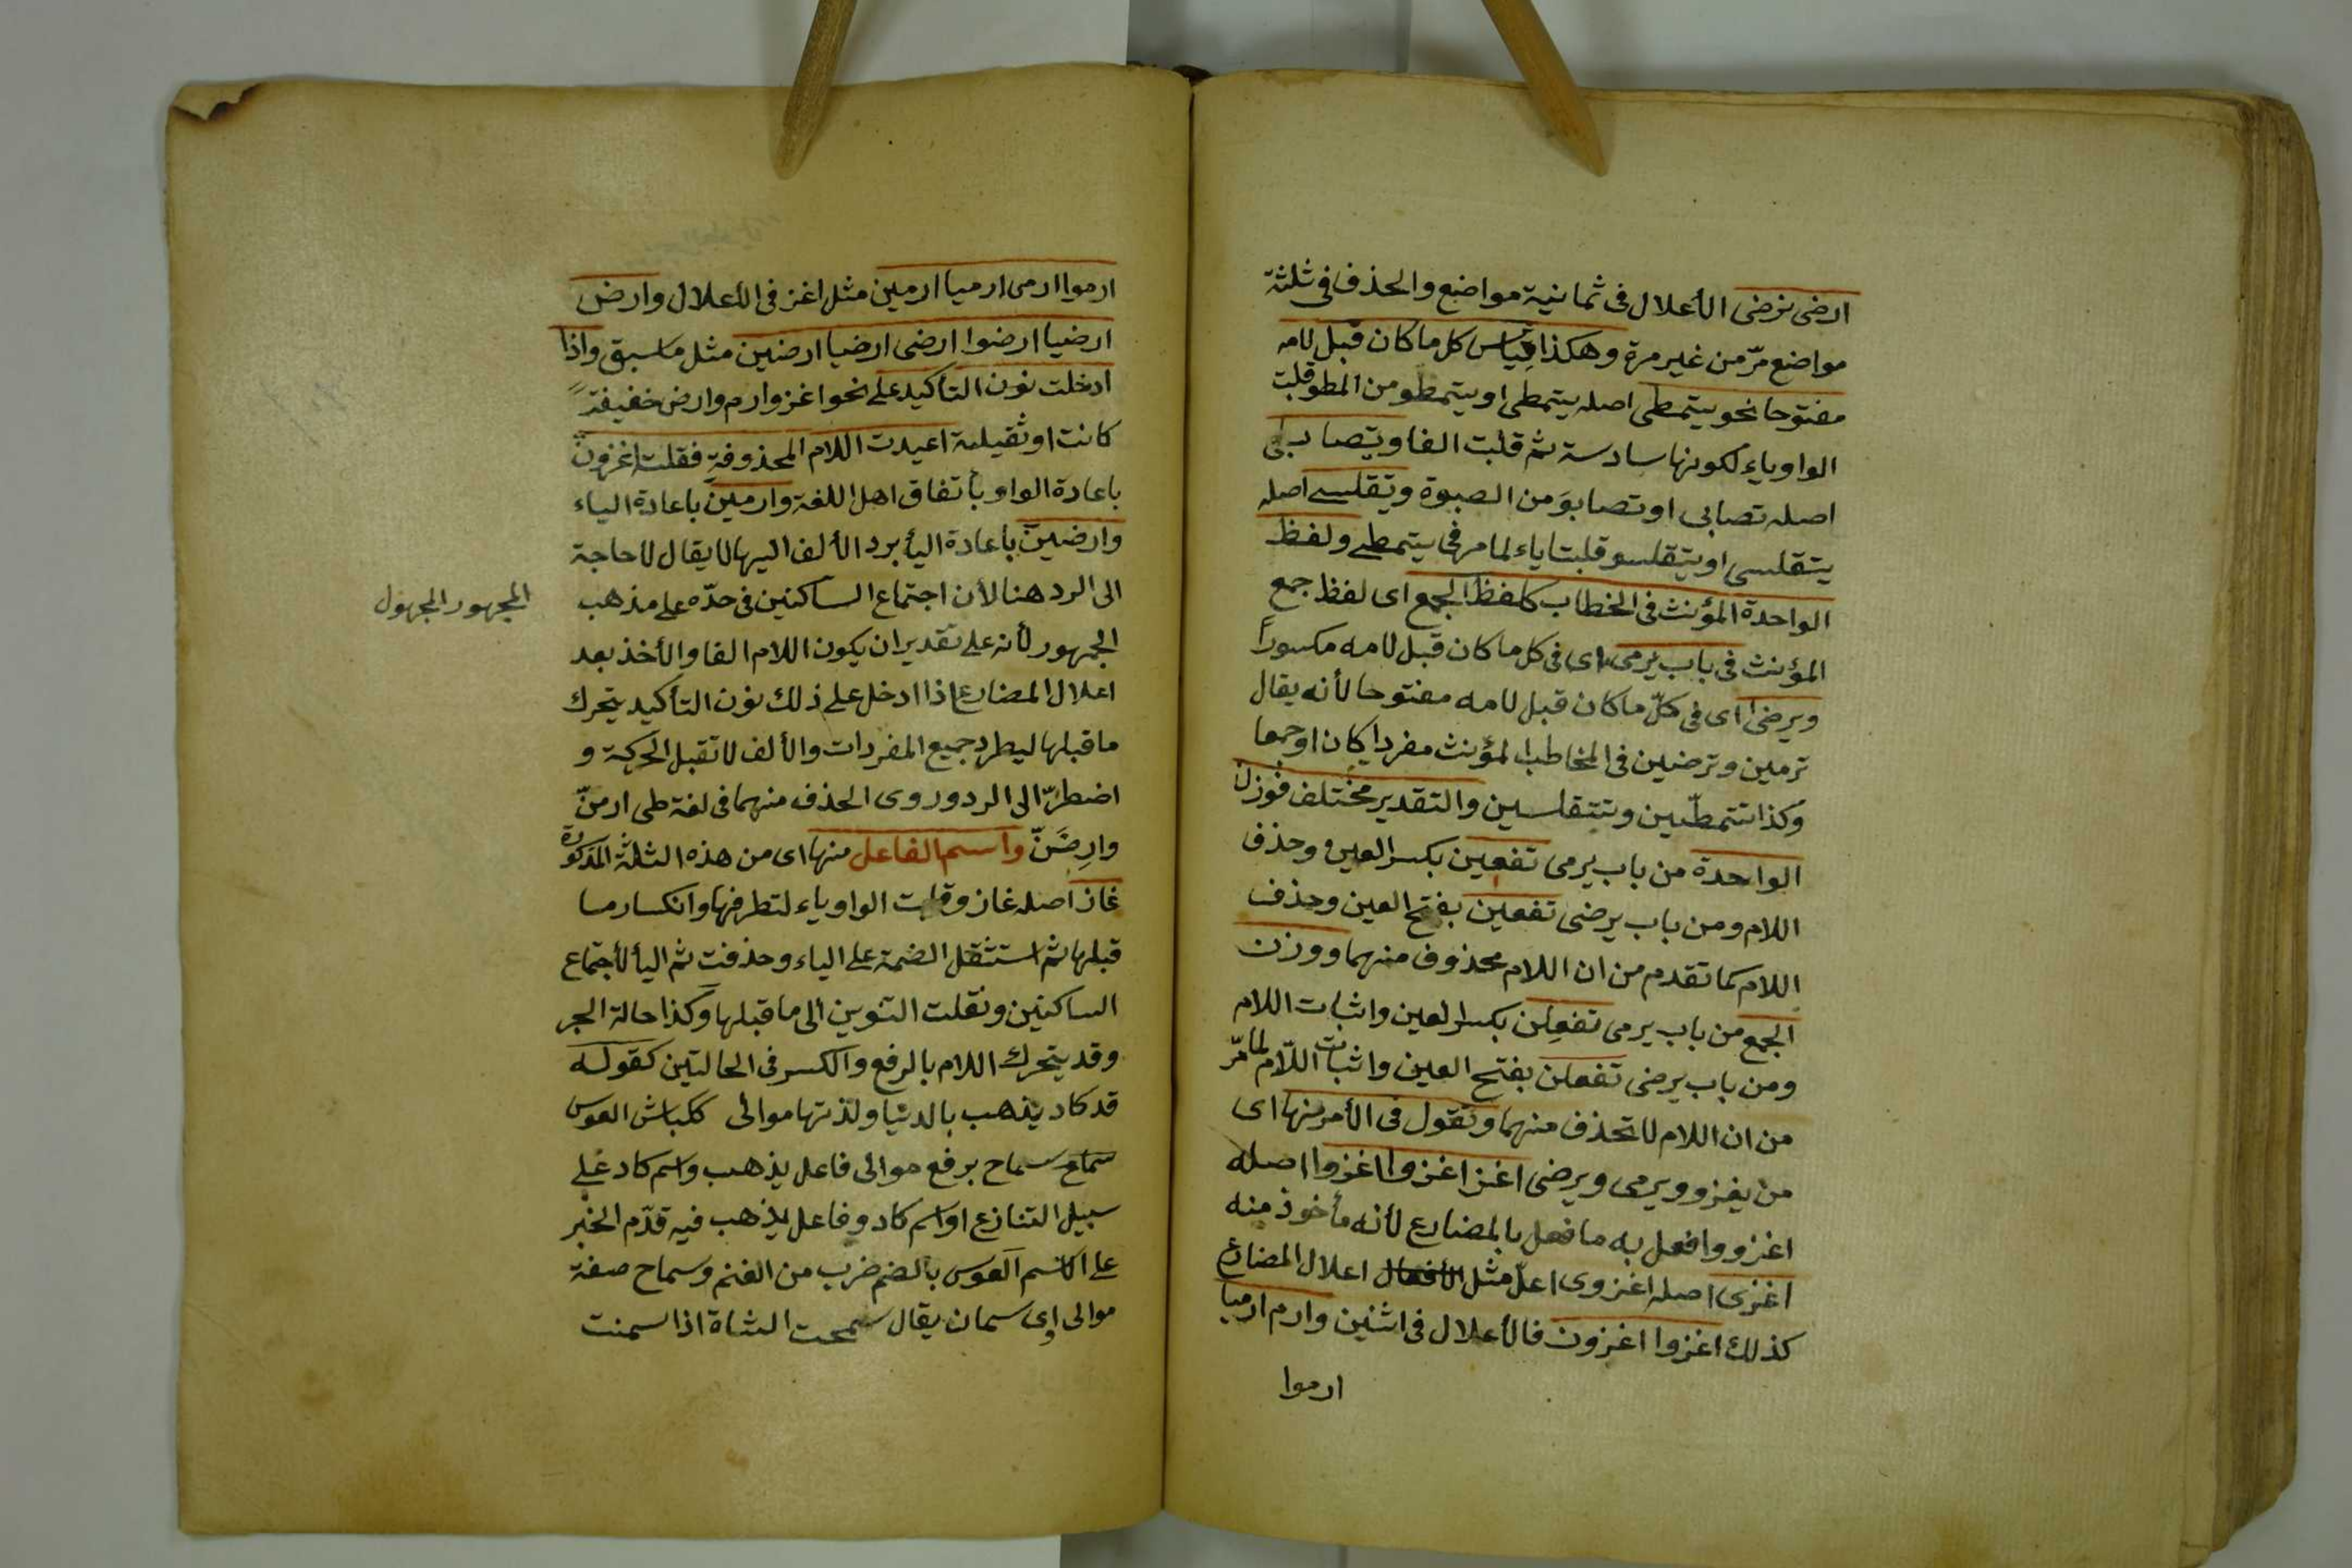 ارضى نرضى الأعلال فى ثمانية مواضع والحذف فى ثلثة
مواضع مرّ من غير مرة وهكذا قياس كل ما كان قبل لامه
مفتوحا نحو يتمطى اصله يتمطى او يتمطو من المطو قلبت
الواو ياء لكونها سادسة ثم قلبت الفا ويتصابى
اصله تصابى او تصابوَ من الصبوة ويتقلسى اصله
يتقلسى او يتقلسو قلبتا ياء لما مر فى يتمطى ولفظ
الواحدة المؤنث فى الخطاب كلفظ الجمع اى لفظ جمع
المؤنث فى باب يرمى اى فى كل ما كان قبل لامه مكسوراً
ويرضى اى فى كلّ ما كان قبل لامه مفتوحا لأنه يقال
ترمين وترضين فى المخاطب المؤنث مفردا كان او جمعا
وكذا تتمطّين وتتقلسين والتقدير مختلف فوزن
الواحدة من باب يرمى تفعين بكسر العين وحذف
اللام ومن باب يرضى تفعين بفتح العين وحذف
اللام كما تقدم من ان اللام محذوف منهما ووزن
الجمع من باب يرمى تفعلن بكسر العين واثبات اللام
ومن باب يرضى تفعلن بفتح العين واثبات اللّام لما مرّ
من ان اللام لا تحذف منهما وتقول فى الأمر منها اى
من يغزو ويرمى ويرضى اغز اغزوا اغزوا اصله
اغزو وافعل به ما فعل بالمضارع لأنه مأخوذ منه
اغزى اصله اغزوى اعلّ مثل الأفعال اعلال المضارع
كذلك اغزوا اغزون فالأعلال فى اثنين وارم ارميا
ارموا
ارموا ارمى ارميا ارمين مثل اغز فى الأعلال وارض
ارضيا ارضوا ارضى ارضيا ارضين مثل ما سبق واذا
ادخلت نون التأكيد على نحو اغز وارم وارض خفيفة
كانت او ثقيلة اعيدت اللام المحذوفة فقلت اغزونّ
باعادة الواو بأتفاق اهل اللغة وارمينّ باعادة الياء
وارضينّ باعادة اليأ برد الألف اليها لا يقال لا حاجة
الى الرد هنا لأن اجتماع الساكنين فى حدّه على مذهب
المجهور المجهول
الجمهور لأنه على تقدير ان يكون اللام الفا والأخذ بعد
اعلال المضارع اذا ادخل على ذلك نون التأكيد يتحرك
ما قبلها ليطرد جميع المفردات والألف لا تقبل الحركة و
اضطرّ الى الرد وروى الحذف منهما فى لغة طى ارمنّ
وارضَنّ واسم الفاعل منها اى من هذه الثلثة المذكورة
غاز اصله غازو قلبت الواو ياء لتطرفها وانكسار ما
قبلها ثم استثقل الضمة على الياء وحذفت ثم اليأ لأجتماع
الساكنين ونقلت التنوين الى ما قبلها وكذا حالة الجر
وقد يتحرك اللام بالرفع والكسر فى الحالتين كقوله
قد كاد يذهب بالدنيا ولذتها موالى ككباش العوس
سماح برفع موالى فاعل يذهب واسم كاد على
سبيل التنازع او اسم كاد وفاعل يذهب فيه قدّم الخبر
على الاسم العوس بالضم ضرب من الغنم وسماح صفة
موالى اى سمان يقال سمحت الشاة اذا سمنت